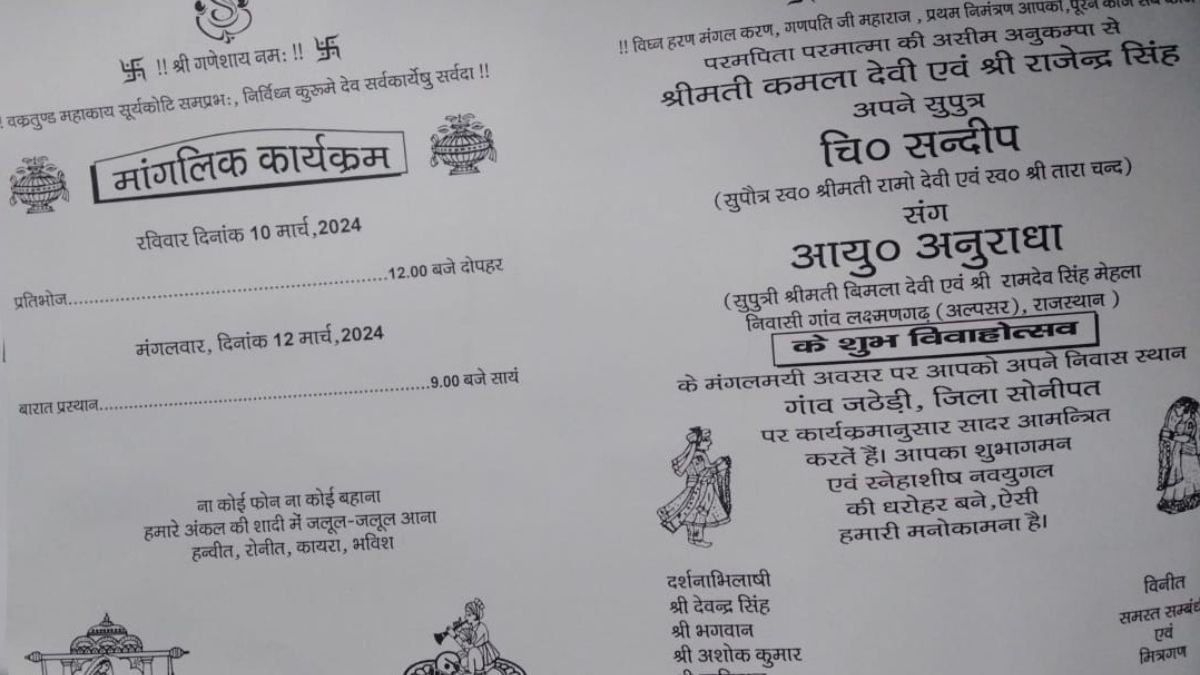 !! श्री गणेशाय नमः !!
वक्रतुण्ड महाकाय सूर्यकोटि समप्रभः, निर्विध्न कुरूमे देव सर्वकार्येषु सर्वदा !!
मांगलिक कार्यक्रम
रविवार दिनांक 10 मार्च,2024
प्रतिभोज..........................................................12.00 बजे दोपहर
मंगलवार, दिनांक 12 मार्च,2024
बारात प्रस्थान............................................................9.00 बजे सायं
ना कोई फोन ना कोई बहाना
हमारे अंकल की शादी में जलूल-जलूल आना
हन्वीत, रोनीत, कायरा, भविश
!! विघ्न हरण मंगल करण, गणपति जी महाराज , प्रथम निमंत्रण आपको,पूरन
परमपिता परमात्मा की असीम अनुकम्पा से
श्रीमती कमला देवी एवं श्री राजेन्द्र सिंह
अपने सुपुत्र
चि० सन्दीप
(सुपौत्र स्व० श्रीमती रामो देवी एवं स्व० श्री तारा चन्द)
संग
आयु० अनुराधा
(सुपुत्री श्रीमती बिमला देवी एवं श्री रामदेव सिंह मेहला
निवासी गांव लक्ष्मणगढ़ (अल्पसर), राजस्थान )
के शुभ विवाहोत्सव
के मंगलमयी अवसर पर आपको अपने निवास स्थान
गांव जठेड़ी, जिला सोनीपत
पर कार्यक्रमानुसार सादर आमन्त्रित
करतें हैं। आपका शुभागमन
एवं स्नेहाशीष नवयुगल
की धरोहर बने,ऐसी
हमारी मनोकामना है।
दर्शनाभिलाषी
श्री देवन्द्र सिंह
श्री भगवान
श्री अशोक कुमार
विनीत
समस्त सम्बंधी
एवं
मित्रगण